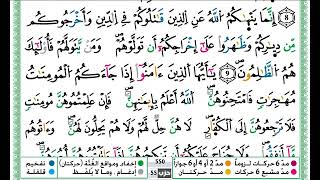 إِنَّمَا يَنْهَىٰكُمُ ٱللَّهُ عَنِ ٱلَّذِينَ قَـٰتَلُوكُمْ فِى ٱلدِّينِ وَأَخْرَجُوكُم
مِّن دِيَـٰرِكُمْ وَظَـٰهَرُوا۟ عَلَىٰٓ إِخْرَاجِكُمْ أَن تَوَلَّوْهُمْ ۚ وَمَن يَتَوَلَّهُمْ فَأُو۟لَـٰٓئِكَ
هُمُ ٱلظَّـٰلِمُونَ ٩ يَـٰٓأَيُّهَا ٱلَّذِينَ ءَامَنُوٓا۟ إِذَا جَآءَكُمُ ٱلْمُؤْمِنَـٰتُ
مُهَـٰجِرَٰتٍ فَٱمْتَحِنُوهُنَّ ۖ ٱللَّهُ أَعْلَمُ بِإِيمَـٰنِهِنَّ ۖ فَإِنْ عَلِمْتُمُوهُنَّ مُؤْمِنَـٰتٍ
فَلَا تَرْجِعُوهُنَّ إِلَى ٱلْكُفَّارِ ۖ لَا هُنَّ حِلٌّ لَّهُمْ وَلَا هُمْ يَحِلُّونَ لَهُنَّ ۖ وَءَاتُوهُم
مد 6 حركات لزوماً مد 2 أو 4 أو 6 جوازاً
مد مشبع 6 حركات مد حركتان
550
حزب 55
إخفاء، ومواقع الغنة (حركتان)
إدغام، وما لا يلفظ
تفخيم
قلقلة